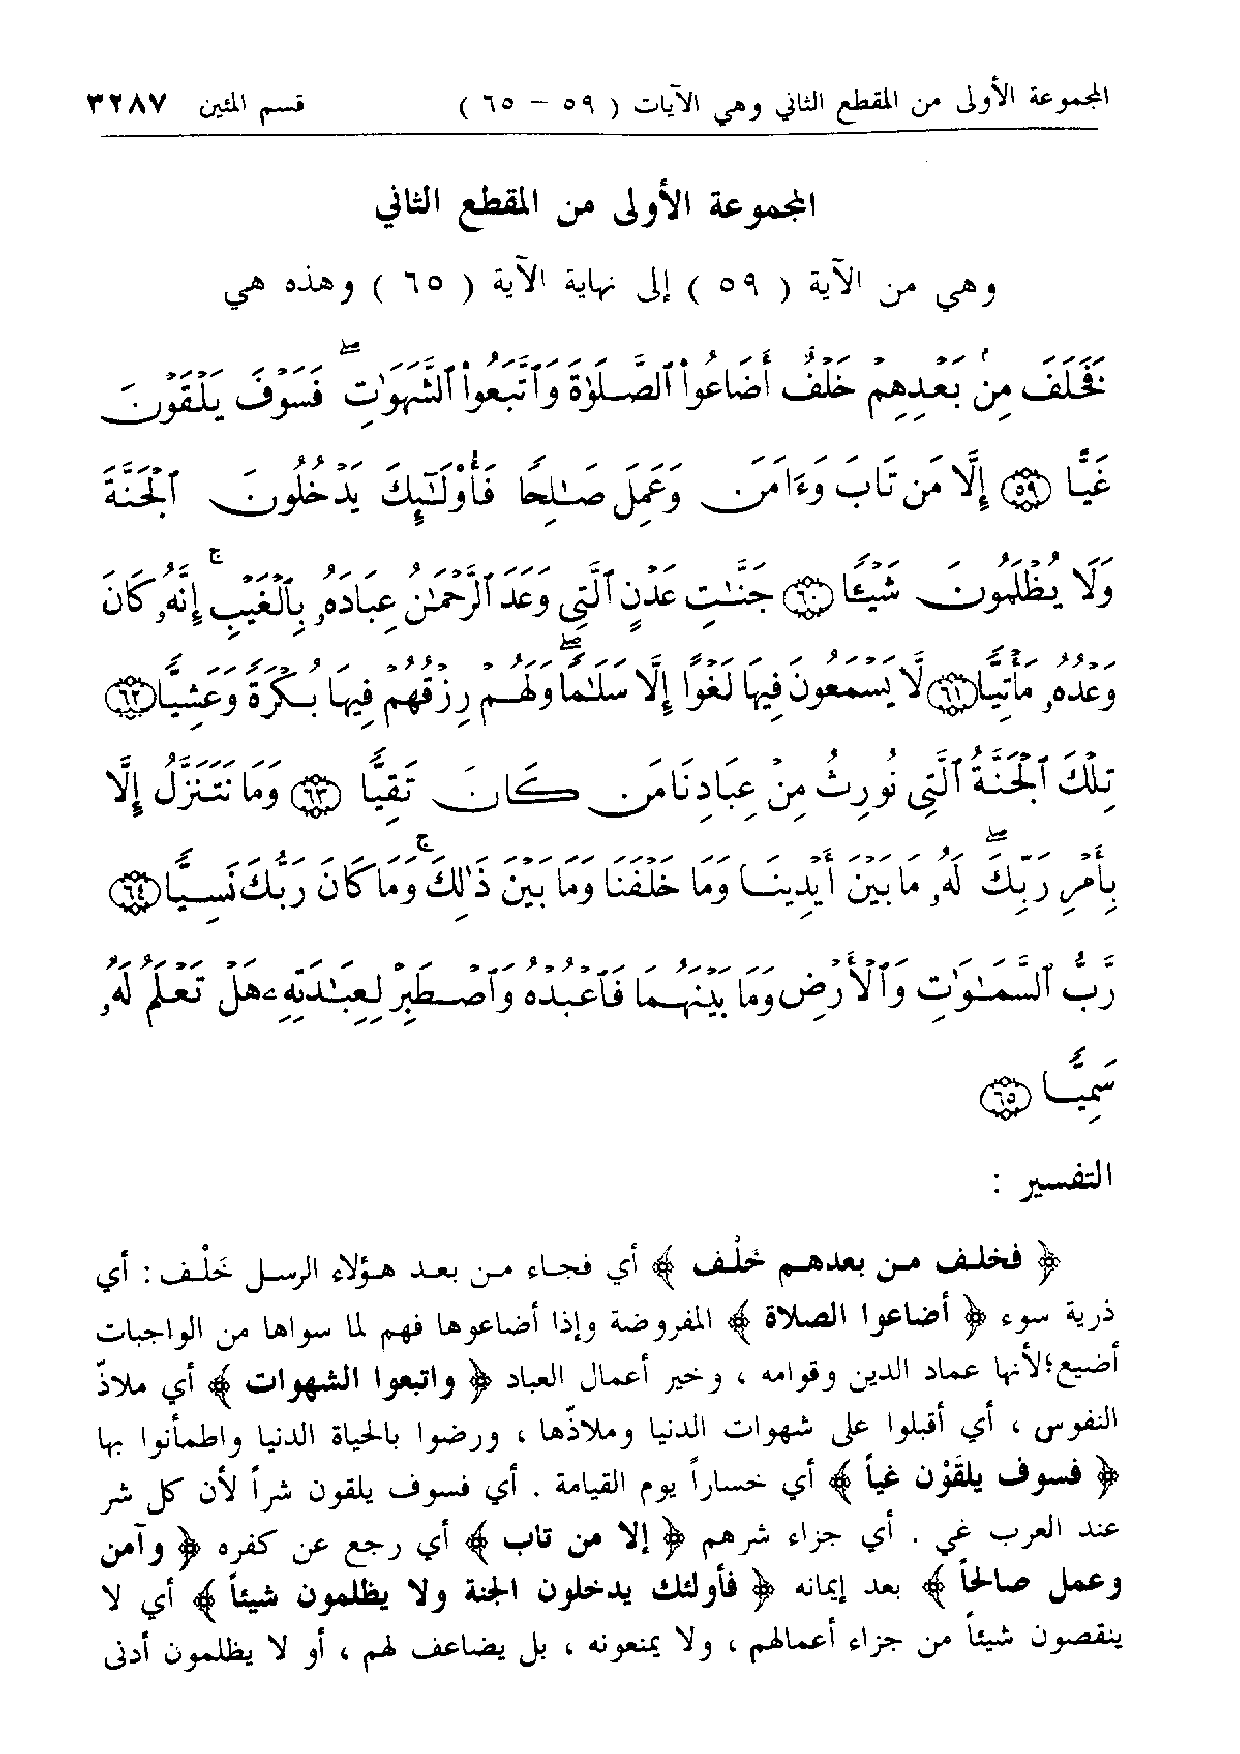 المجموعة الأولى من المقطع الثاني وهي الآيات ( ٥٩ – ٦٥ ) قسم المئين ٣٢٨٧
المجموعة الأولى من المقطع الثاني
وهي من الآية ( ٥٩ ) إلى نهاية الآية ( ٦٥ ) وهذه هي
فَخَلَفَ مِنۢ بَعْدِهِمْ خَلْفٌ أَضَاعُوا۟ ٱلصَّلَوٰةَ وَٱتَّبَعُوا۟ ٱلشَّهَوَٰتِ ۖ فَسَوْفَ يَلْقَوْنَ
غَيًّا ٥٩ إِلَّا مَن تَابَ وَءَامَنَ وَعَمِلَ صَـٰلِحًا فَأُو۟لَـٰٓئِكَ يَدْخُلُونَ ٱلْجَنَّةَ
وَلَا يُظْلَمُونَ شَيْـًٔا ٦٠ جَنَّـٰتِ عَدْنٍ ٱلَّتِى وَعَدَ ٱلرَّحْمَـٰنُ عِبَادَهُۥ بِٱلْغَيْبِ ۚ إِنَّهُۥ كَانَ
وَعْدُهُۥ مَأْتِيًّا ٦١ لَّا يَسْمَعُونَ فِيهَا لَغْوًا إِلَّا سَلَـٰمًا ۖ وَلَهُمْ رِزْقُهُمْ فِيهَا بُكْرَةً وَعَشِيًّا ٦٢
تِلْكَ ٱلْجَنَّةُ ٱلَّتِى نُورِثُ مِنْ عِبَادِنَا مَن كَانَ تَقِيًّا ٦٣ وَمَا نَتَنَزَّلُ إِلَّا
بِأَمْرِ رَبِّكَ ۖ لَهُۥ مَا بَيْنَ أَيْدِينَا وَمَا خَلْفَنَا وَمَا بَيْنَ ذَٰلِكَ ۚ وَمَا كَانَ رَبُّكَ نَسِيًّا ٦٤
رَّبُّ ٱلسَّمَـٰوَٰتِ وَٱلْأَرْضِ وَمَا بَيْنَهُمَا فَٱعْبُدْهُ وَٱصْطَبِرْ لِعِبَـٰدَتِهِۦ ۚ هَلْ تَعْلَمُ لَهُۥ
سَمِيًّا ٦٥
التفسير :
﴿ فخلف من بعدهم خلْف ﴾ أي فجاء من بعد هؤلاء الرسل خَلْف : أي
ذرية سوء ﴿ أضاعوا الصلاة ﴾ المفروضة وإذا أضاعوها فهم لما سواها من الواجبات
أضيع؛لأنها عماد الدين وقوامه ، وخير أعمال العباد ﴿ واتبعوا الشهوات ﴾ أي ملاذّ
النفوس ، أي أقبلوا على شهوات الدنيا وملاذّها ، ورضوا بالحياة الدنيا واطمأنوا بها
﴿ فسوف يلقَوْن غياً ﴾ أي خساراً يوم القيامة . أي فسوف يلقون شراً لأن كل شر
عند العرب غي . أي جزاء شرهم ﴿ إلا من تاب ﴾ أي رجع عن كفره ﴿ وآمن
وعمل صالحاً ﴾ بعد إيمانه ﴿ فأولئك يدخلون الجنة ولا يظلمون شيئاً ﴾ أي لا
ينقصون شيئاً من جزاء أعمالهم ، ولا يمنعونه ، بل يضاعف لهم ، أو لا يظلمون أدنى